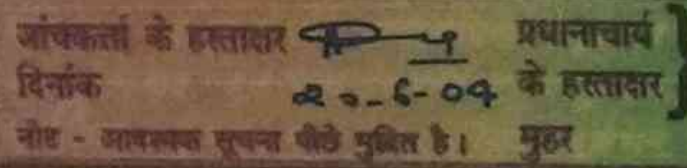 जांचकर्ता के हस्ताक्षर प्रधानाचार्य
दिनांक 20-6-04 के हस्ताक्षर
नोट - आवश्यक सूचना पीछे मुद्रित है। मुहर